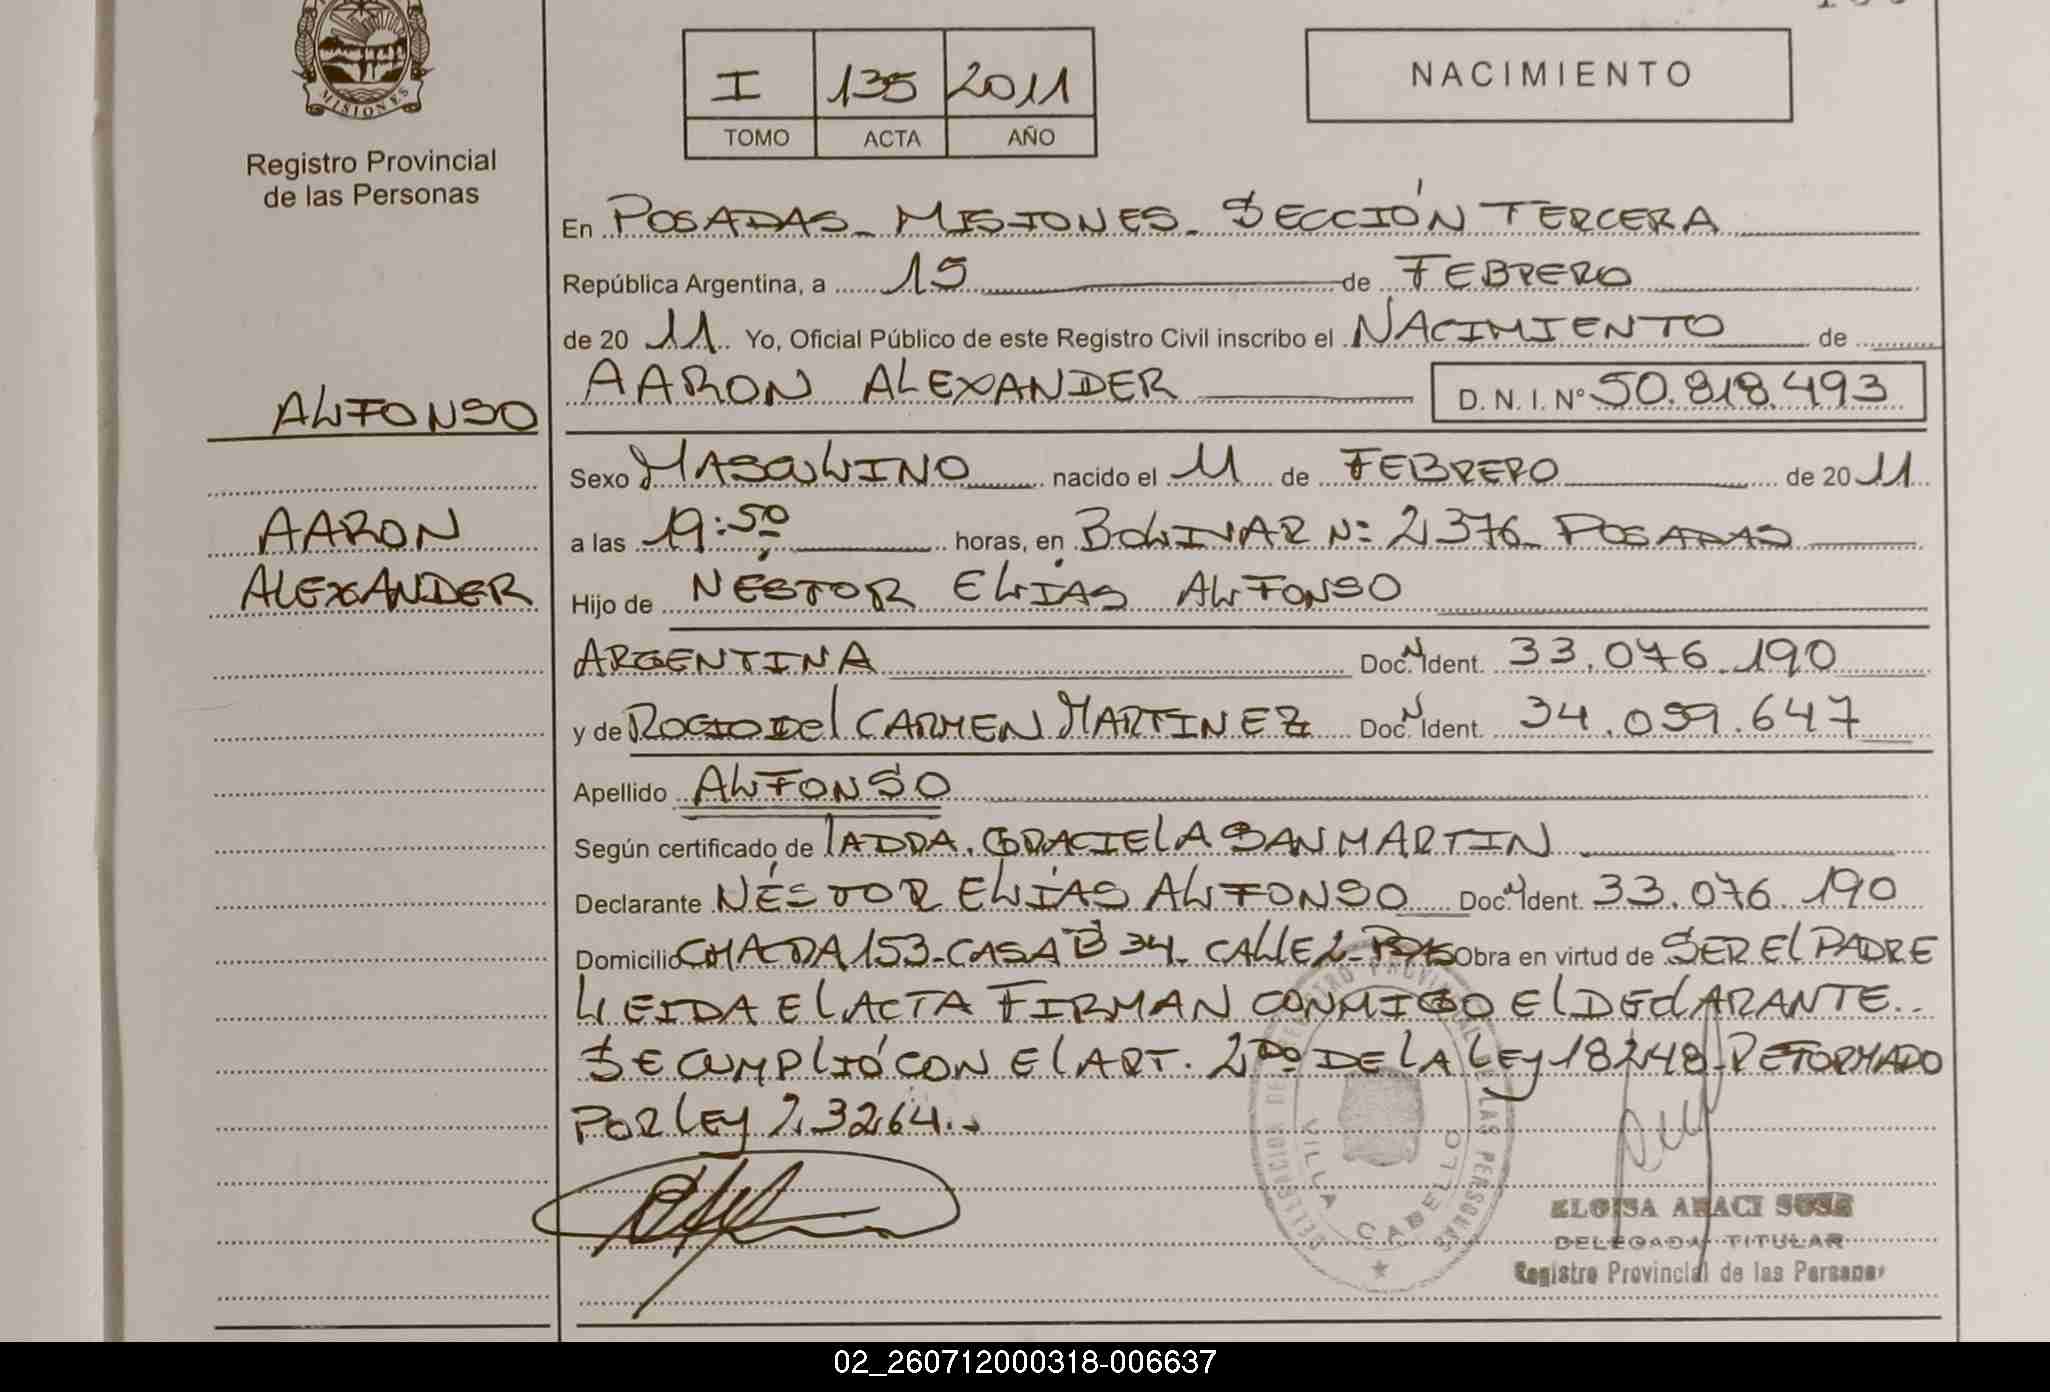 MISIONES
Registro Provincial
de las Personas
I 135 2011
TOMO ACTA AÑO
NACIMIENTO
En POSADAS_ MISIONES_ SECCIÓN TERCERA
República Argentina, a 15 de FEBRERO
de 20 11 Yo, Oficial Público de este Registro Civil inscribo el NACIMIENTO de
AARON ALEXANDER D. N. I. Nº 50.818.493
ALFONSO
AARON
ALEXANDER
Sexo MASCULINO nacido el 11 de FEBRERO de 20 11
a las 19:50 horas, en BOLIVAR Nº 2376_ POSADAS
Hijo de NÉSTOR ELÍAS ALFONSO
ARGENTINA Doc. N Ident. 33.076.190
y de ROCIO DEL CARMEN MARTINEZ Doc. N Ident. 34.059.647
Apellido ALFONSO
Según certificado de LA DRA. GRACIELA SAN MARTIN
Declarante NÉSTOR ELÍAS ALFONSO Doc. N Ident. 33.076.190
Domicilio CHACRA 153_ CASA B 34_ CALLE 2_ Obra en virtud de SER EL PADRE
LEIDA EL ACTA FIRMAN CONMIGO EL DECLARANTE..
SE CUMPLIÓ CON EL ART. 2DO DE LA LEY 18248_ REFORMADO
POR LEY 23264._
DELEGACION DEL REGISTRO PROVINCIAL DE LAS PERSONAS
VILLA CABELLO
ELOISA ARACI SOSA
DELEGADA TITULAR
Registro Provincial de las Personas
02_260712000318-006637